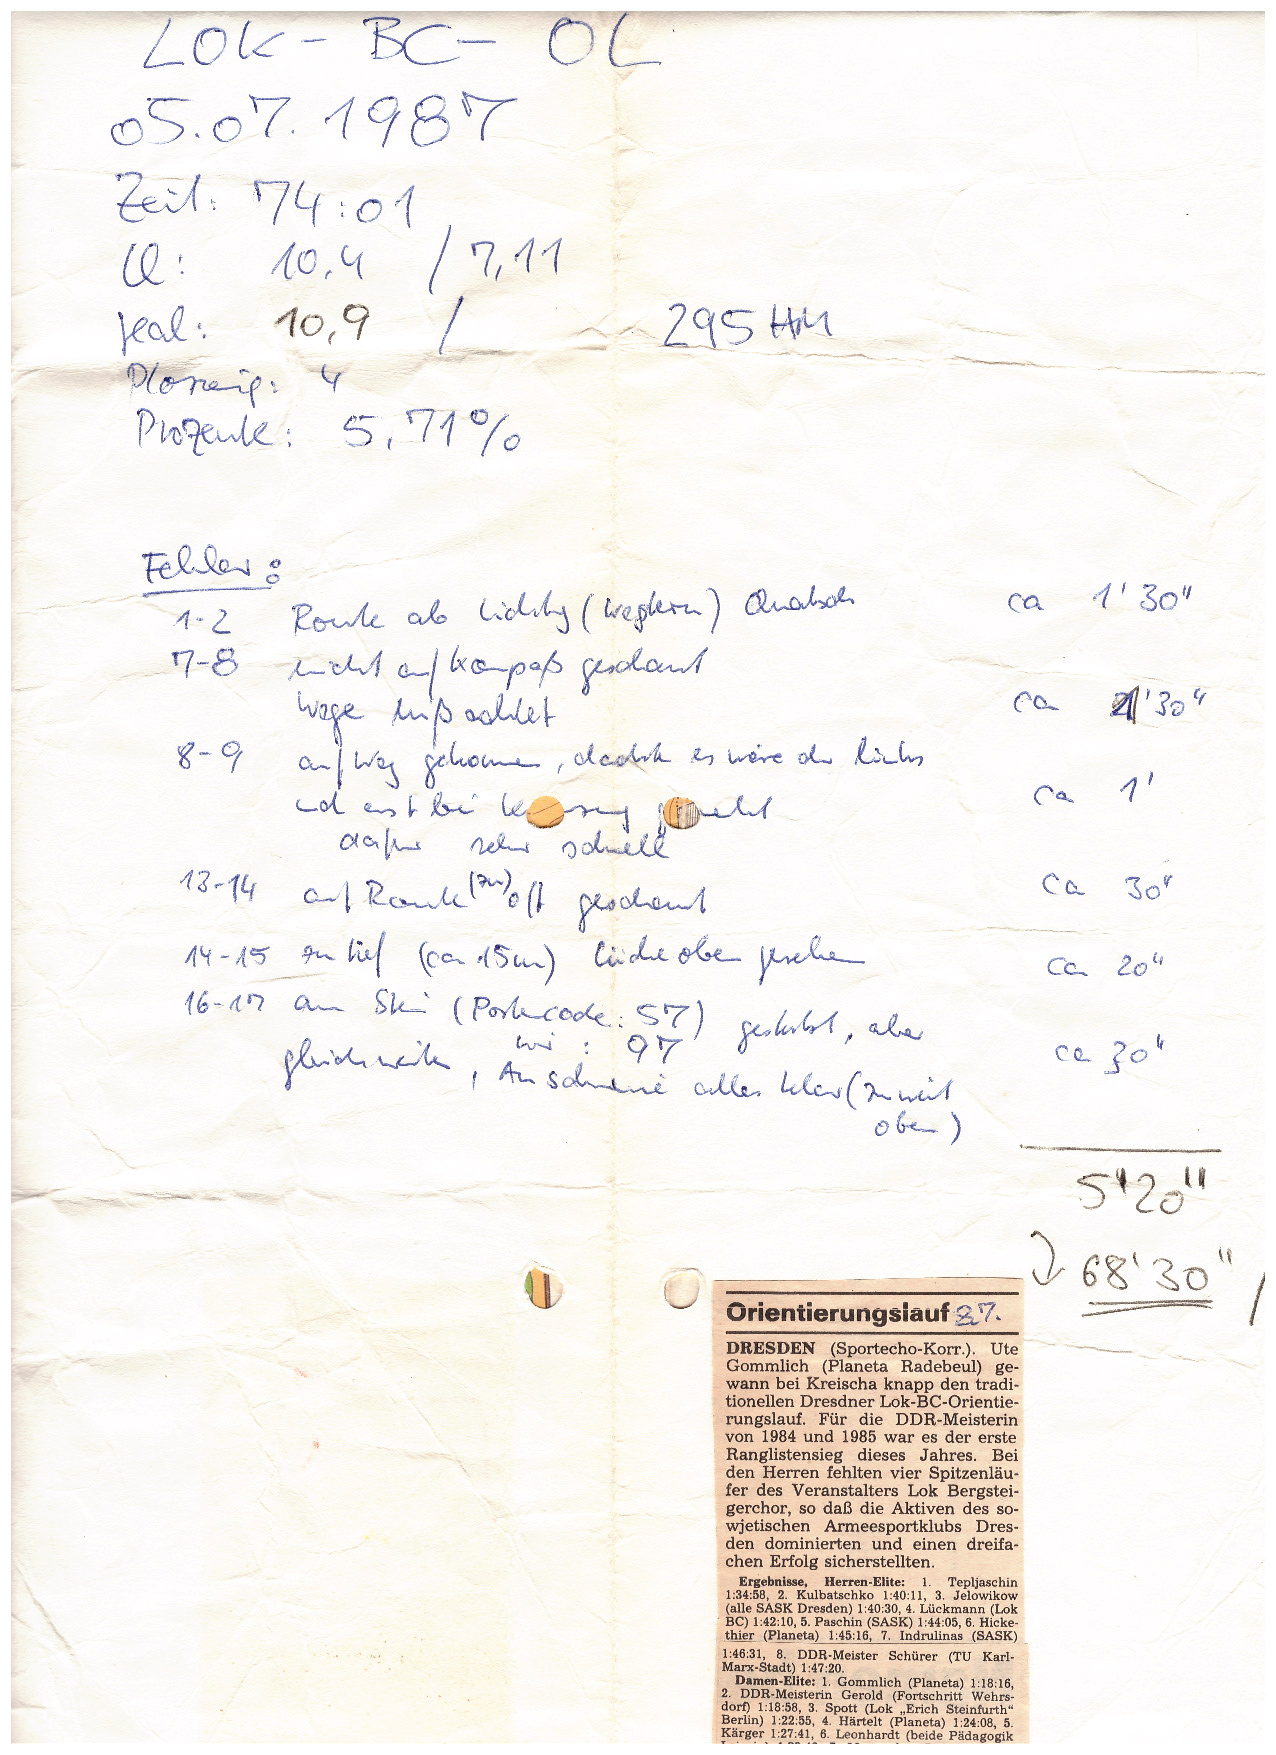 LOK - BC - OL
05.07.1987
Zeit: 74:01
10,4 / 7,11
real: 10,9 / 295 HM
4
Prozente: 5,71%
Fehler:
1-2 Route als (Wegkern) Quatsch ca 1'30"
7-8 nicht auf Kompaß geschaut
Wege mißachtet ca 1'30"
8-9 auf Weg gekommen, dachte es wäre der links
und erst bei ca 1'
dafür sehr schnell
13-14 auf Route (zu) oft geschaut ca 30"
14-15 zu tief (ca 15m) oben gesehen ca 20"
16-17 am (Postencode: 57) aber
wir: 97 ca 30"
gleich weiter, alles klar (zu weit
oben)
5'20"
68'30"
Orientierungslauf 87.
DRESDEN (Sportecho-Korr.). Ute
Gommlich (Planeta Radebeul) ge-
wann bei Kreischa knapp den tradi-
tionellen Dresdner Lok-BC-Orientie-
rungslauf. Für die DDR-Meisterin
von 1984 und 1985 war es der erste
Ranglistensieg dieses Jahres. Bei
den Herren fehlten vier Spitzenläu-
fer des Veranstalters Lok Bergstei-
gerchor, so daß die Aktiven des so-
wjetischen Armeesportklubs Dres-
den dominierten und einen dreifa-
chen Erfolg sicherstellten.
Ergebnisse, Herren-Elite: 1. Tepljaschin
1:34:58, 2. Kulbatschko 1:40:11, 3. Jelowikow
(alle SASK Dresden) 1:40:30, 4. Lückmann (Lok
BC) 1:42:10, 5. Paschin (SASK) 1:44:05, 6. Hicke-
thier (Planeta) 1:45:16, 7. Indrulinas (SASK)
1:46:31, 8. DDR-Meister Schürer (TU Karl-
Marx-Stadt) 1:47:20.
Damen-Elite: 1. Gommlich (Planeta) 1:18:16,
2. DDR-Meisterin Gerold (Fortschritt Wehrs-
dorf) 1:18:58, 3. Spott (Lok „Erich Steinfurth“
Berlin) 1:22:55, 4. Härtelt (Planeta) 1:24:08, 5.
Kärger 1:27:41, 6. Leonhardt (beide Pädagogik